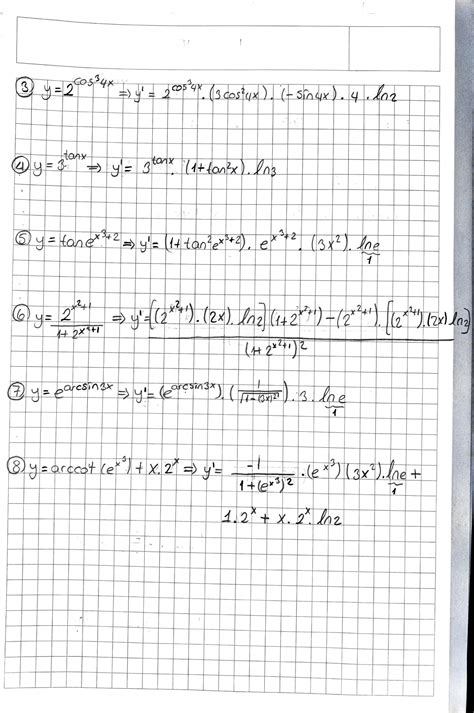 ③ y=2^cos³4x ⇒ y' = 2^cos³4x . (3cos²4x) . (-sin4x) . 4 . ln2
④ y=3^tanx ⇒ y' = 3^tanx . (1+tan²x) . ln3
⑤ y=tane^x³+2 ⇒ y' = (1+tan²e^x³+2) . e^x³+2 . (3x²) . lne
1
⑥ y= 2^x²+1 / 1+2^x²+1 ⇒ y' = [(2^x²+1) . (2x) . ln2] (1+2^x²+1) - (2^x²+1) . [(2^x²+1) . (2x) . ln2] / (1+2^x²+1)²
⑦ y=e^arcsin3x ⇒ y' = (e^arcsin3x) . (1/√1-(3x)²) . 3 . lne
1
⑧ y=arccot(e^x³) + x.2^x ⇒ y' = -1 / 1+(e^x³)² . (e^x³) (3x²) . lne +
1
1.2^x + x.2^x . ln2